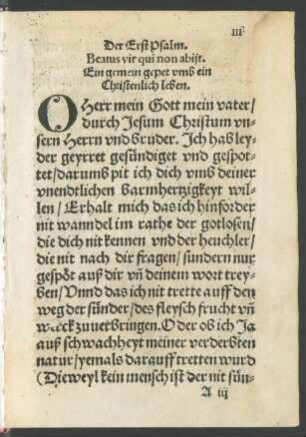 III
Der Erst Psalm.
Beatus vir qui non abijt.
Ein gemein gepet vmb ein
Christenlich leben.
O Herr mein Gott mein vater/
durch Jesum Christum vn-
sern Herrn vnd bruder. Ich hab ley-
der geyrret gesündiget vnd gespot-
tet/ darumb pit ich dich vmb deiner
vnendtlichen barmhertzigkeyt wil-
len/ Erhalt mich das ich hinforder
nit wanndel im rathe der gotlosen/
die dich nit kennen vnd der heuchler/
die nit nach dir fragen/ sundern nur
gespöt auß dir vñ deinem wort trey-
ben/ Vnnd das ich nit trette auff den
weg der sünder/ des fleysch frucht vñ
werck zuuerbringen. O der ob ich Ja
auß schwachheyt meiner verderbten
natur/ yemals darauff tretten wurd
(Dieweyl kein mensch ist der nit sün-
A iij